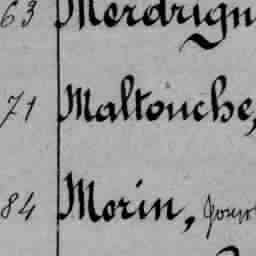 63 Merdrign
71 Maltouche,
84 Morin,